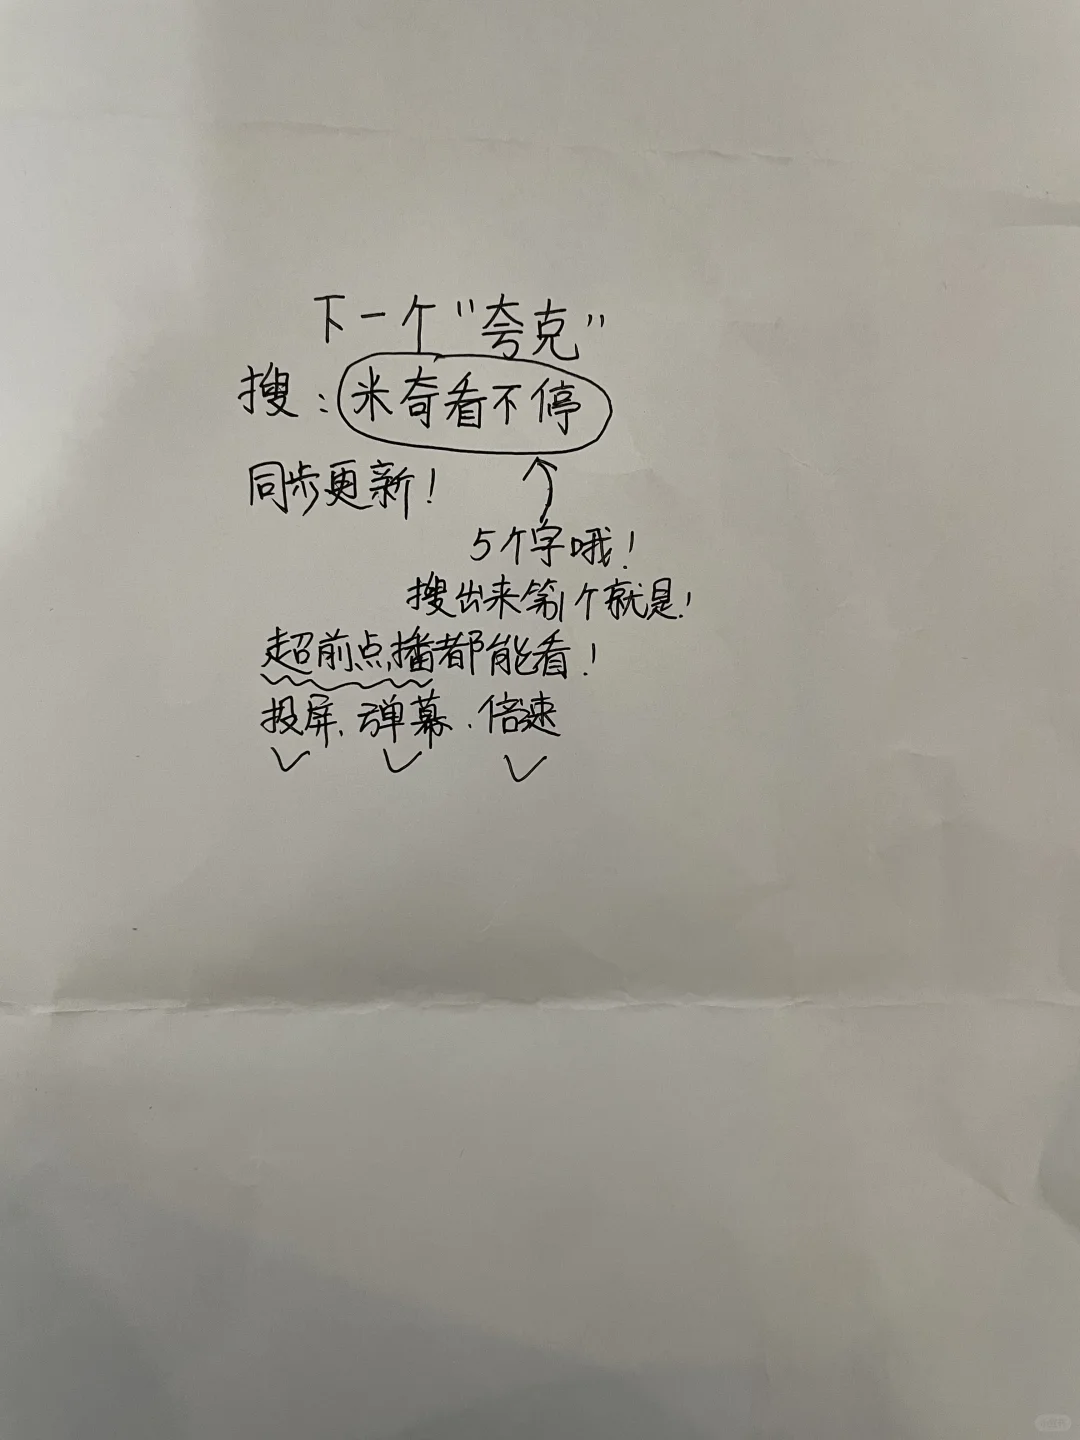 下一个"夸克"
搜：米奇看不停
同步更新！
5个字哦！
搜出来第1个就是！
超前点播都能看！
投屏、弹幕、倍速